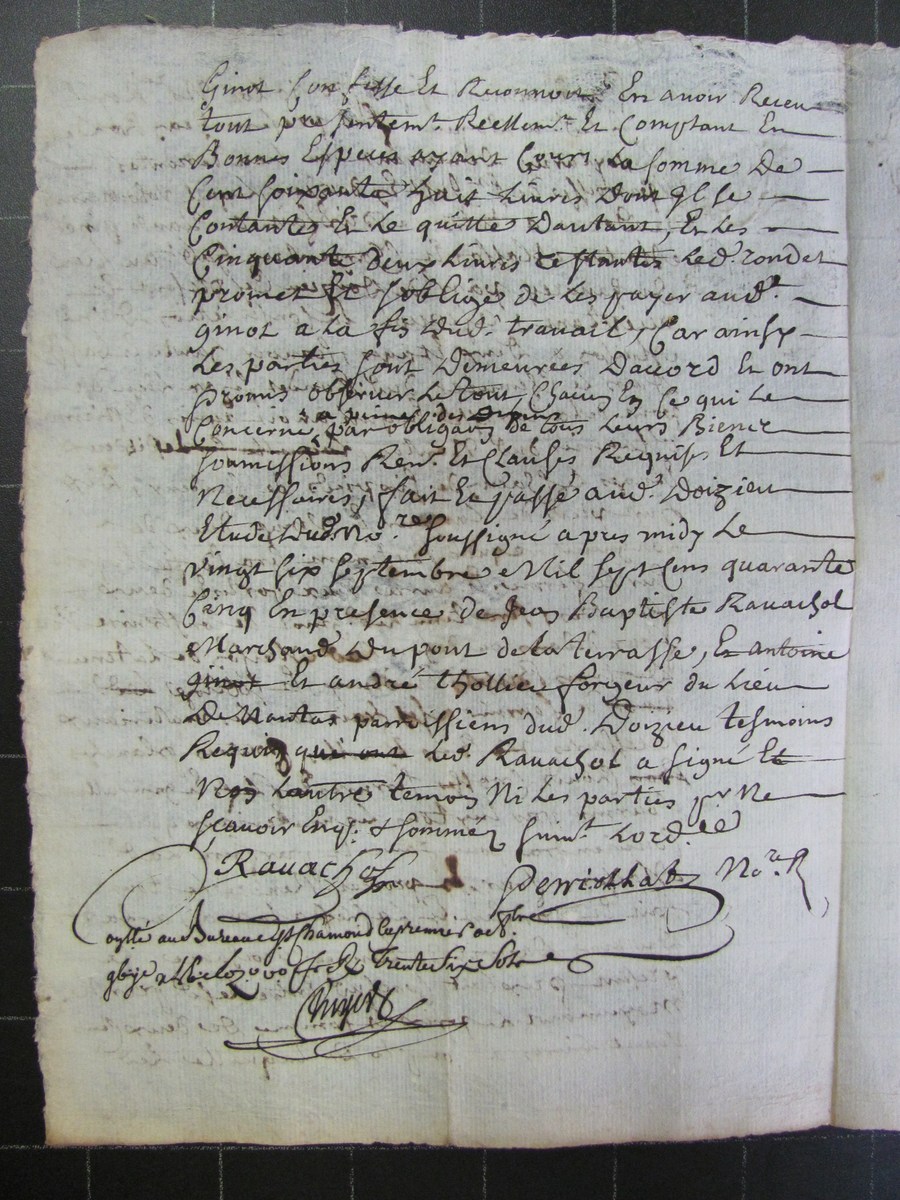 Ginot Confesse Et Reconnoit En avoir Receu
tout presentemt. Reellemt. Et Comptant En
Bonnes Especes ayant Cours La somme De
Cent soixante huit Livres Dont Il se
Contantes Et Le quittes Dautant, Et Les
Cinquante deux Livres restantes Led. rondet
promet Et soblige de Les payer aud.
ginot a La fis dud. travail, Car ainsy
Les parties sont Demeurées Dacord Et ont
promis observer Le tout Chacun En Ce qui Le
a peine des Depens
Concerne par obligaon de tous Leurs Biens
soumissions Ren. Et Clauses Requises Et
Necessaires, fait Et passé aud. Doizieu
Etude Dud. No.re soussigné apres midy Le
vingt six septembre Mil sept Cens quarante
Cinq En presence de Jean Baptiste Ravachol
Marchand Du pont de la terrasse, Et antoine
ginot Et andré thollier forgeur du Lieu
De Nantas parroissiens dud. Doizieu tesmoins
Requis qui ont Led. Ravachol a signé Et
Non Lautre temoin Ni Les parties pr. Ne
sçavoir Enq. & sommés suivt. Lord.ce
Ravachol Derviothat No.re R
au Bureau de St Chamond Le premier 8bre
trente six sols